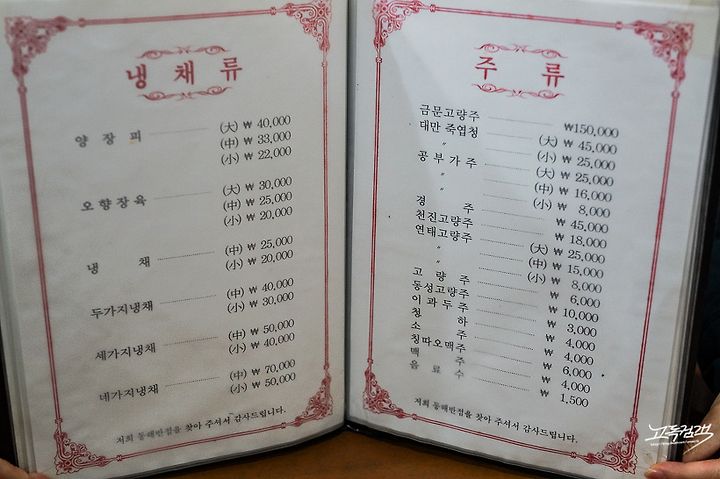 냉채류
양장피 (大) ₩ 40,000
(中) ₩ 33,000
(小) ₩ 22,000
오향장육 (大) ₩ 30,000
(中) ₩ 25,000
(小) ₩ 20,000
냉채 (中) ₩ 25,000
(小) ₩ 20,000
두가지냉채 (中) ₩ 40,000
(小) ₩ 30,000
세가지냉채 (中) ₩ 50,000
(小) ₩ 40,000
네가지냉채 (中) ₩ 70,000
(小) ₩ 50,000
저희 동해반점을 찾아 주셔서 감사드립니다.
주류
금문고량주 ₩150,000
대만 죽엽청 (大) ₩ 45,000
〃 (小) ₩ 25,000
공부가주 (大) ₩ 25,000
〃 (中) ₩ 16,000
〃 (小) ₩ 8,000
경주 ₩ 45,000
천진고량주 ₩ 18,000
연태고량주 (大) ₩ 25,000
〃 (中) ₩ 15,000
〃 (小) ₩ 8,000
고량주 ₩ 6,000
동성고량주 ₩ 10,000
이과두주 ₩ 3,000
청하 ₩ 4,000
소주 ₩ 4,000
칭따오맥주 ₩ 6,000
맥주 ₩ 4,000
음료수 ₩ 1,500
저희 동해반점을 찾아 주셔서 감사드립니다.
고독점객